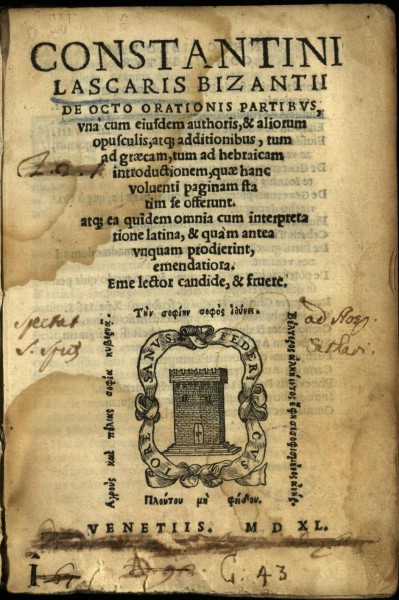 CONSTANTINI
LASCARIS BIZANTII
DE OCTO ORATIONIS PARTIBVS,
vnà cum eiusdem authoris, & aliorum
opusculis, atq; additionibus, tum
ad græcam, tum ad hebraicam
introductionem, quæ hanc
voluenti paginam sta
tim se offerunt.
atq; ea quidem omnia cum interpreta
tione latina, & quàm antea
vnquam prodierint,
emendatiora.
Eme lector candide, & fruere.
Τὴν σοφίην σοφὸς
Ἀργοὺς καὶ πόλεις σοφία κυβερνᾷ.
FEDERI
CVS
TORE
SANVS
Πλούτου μὴ φείδου.
Spectat
ad
VENETIIS. M D XL.
G. 43